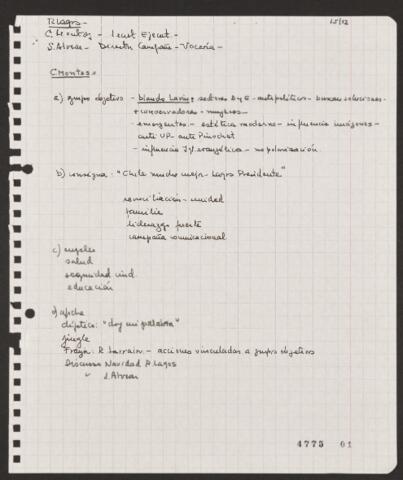 R Lagos - 15/12
C. Montes - Secret Ejecut. -
S. Alvear - Directora Campaña - Vocería -
C Montes.
a) grupo objetivo - blando Lavin: sectores D y E - antipolíticos - buscan soluciones -
+ conservadores - mujeres -
- emergentes - estética moderna - influencia imágenes -
anti UP - anti Pinochet
- influencia TV evangélica - no polarización
b) consigna: "Chile mucho mejor - Lagos Presidente"
reconciliación - unidad
familia
liderazgo fuerte
campaña comunicacional
c) empleo
salud
seguridad ciud.
educación
d) afiche
díptico: "doy mi palabra"
jingle
Franja: R. Larraín - acciones vinculadas a grupo objetivos
Discurso Navidad R. Lagos
" S. Alvear
4775 01